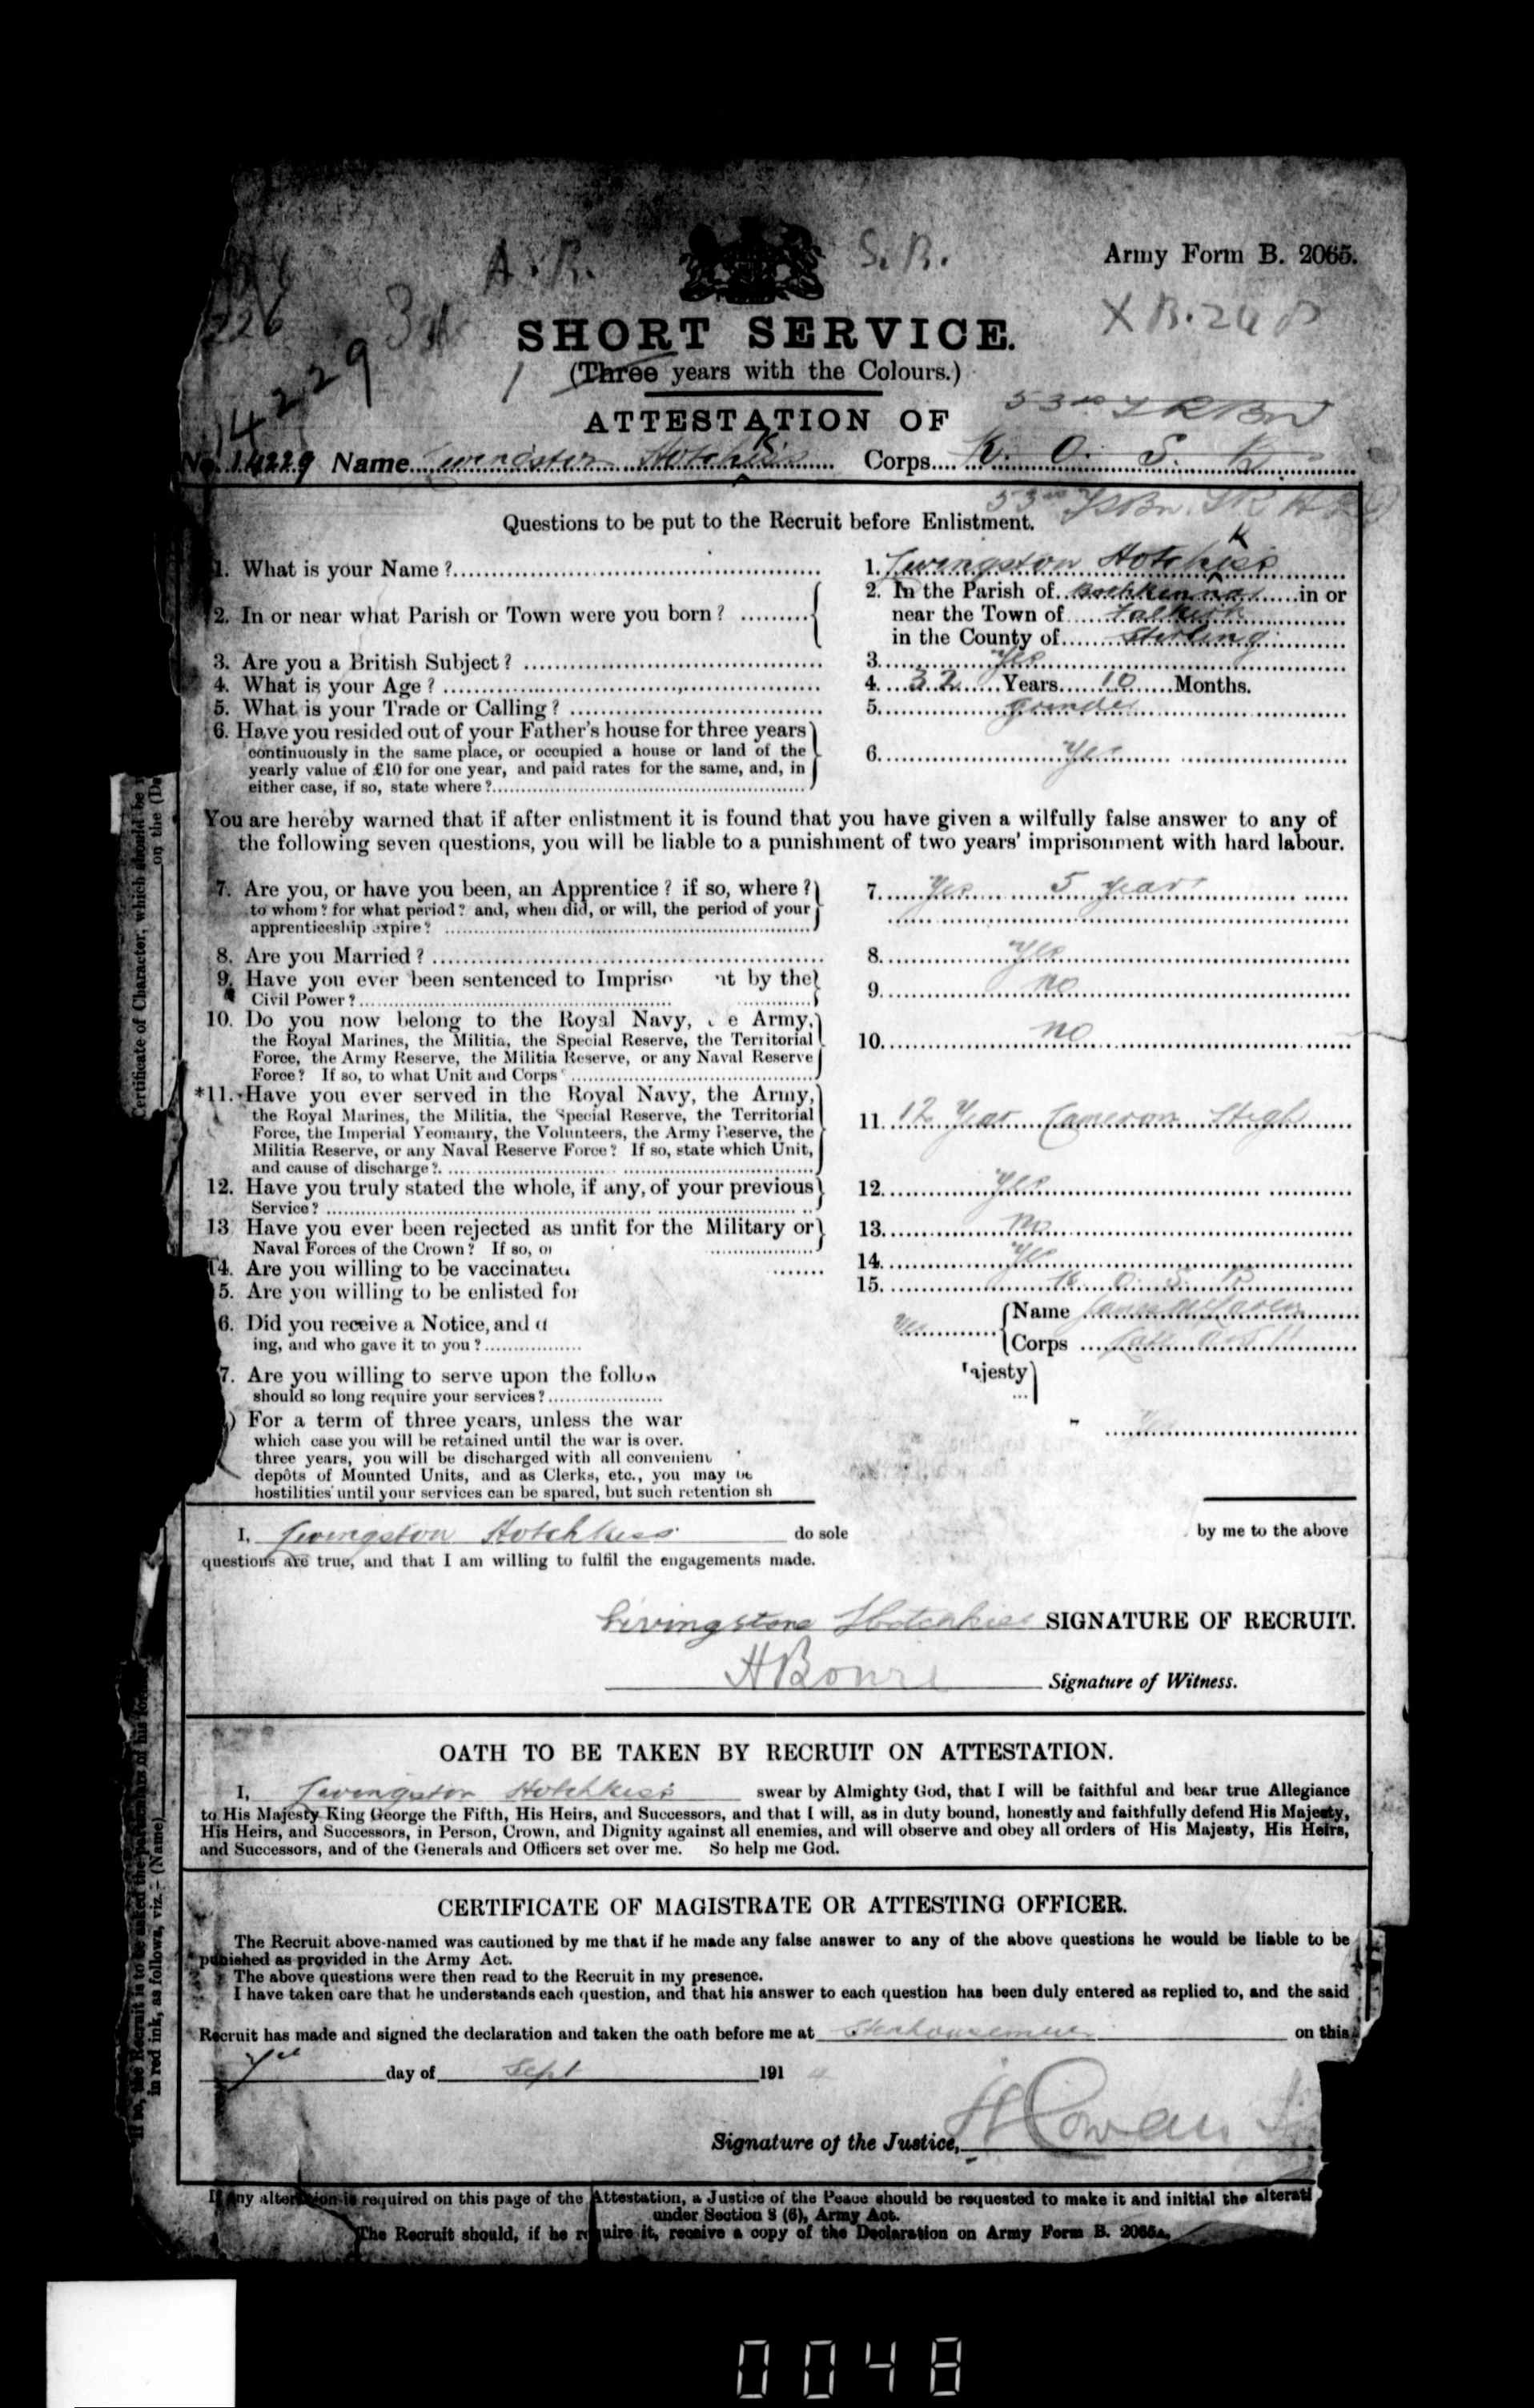 A.R.
S.R.
Army Form B. 2065.
226
3rd
X B.
14229
SHORT SERVICE.
1 (Three years with the Colours.)
ATTESTATION OF
53rd
No. 14229 Name Livingston Hotchkiss Corps K. O. S. B.
53rd
Questions to be put to the Recruit before Enlistment.
1. What is your Name? 1. Livingston Hotchkiss
2. In or near what Parish or Town were you born? 2. In the Parish of Bothkennar in or
near the Town of Falkirk
in the County of Stirling
3. Are you a British Subject? 3. Yes
4. What is your Age? 4. 32 Years 10 Months.
5. What is your Trade or Calling? 5. Grinder
6. Have you resided out of your Father's house for three years
continuously in the same place, or occupied a house or land of the
yearly value of £10 for one year, and paid rates for the same, and, in
either case, if so, state where? 6. Yes
You are hereby warned that if after enlistment it is found that you have given a wilfully false answer to any of
the following seven questions, you will be liable to a punishment of two years' imprisonment with hard labour.
7. Are you, or have you been, an Apprentice? if so, where? 7. Yes 5 Years
to whom? for what period? and, when did, or will, the period of your
apprenticeship expire?
8. Are you Married? 8. Yes
9. Have you ever been sentenced to Impriso nt by the
Civil Power? 9. No
10. Do you now belong to the Royal Navy, e Army,
the Royal Marines, the Militia, the Special Reserve, the Territorial 10. No
Force, the Army Reserve, the Militia Reserve, or any Naval Reserve
Force? If so, to what Unit and Corps
*11. Have you ever served in the Royal Navy, the Army,
the Royal Marines, the Militia, the Special Reserve, the Territorial 11. 12 Year Cameron High
Force, the Imperial Yeomanry, the Volunteers, the Army Reserve, the
Militia Reserve, or any Naval Reserve Force? If so, state which Unit,
and cause of discharge?
12. Have you truly stated the whole, if any, of your previous 12. Yes
Service?
13 Have you ever been rejected as unfit for the Military or 13. No
Naval Forces of the Crown? If so, o
14. Are you willing to be vaccinated 14. Yes
5. Are you willing to be enlisted for 15. K. O. S. B.
6. Did you receive a Notice, and Yes Name James
ing, and who gave it to you? Corps
7. Are you willing to serve upon the follow ajesty
should so long require your services?
) For a term of three years, unless the war Yes
which case you will be retained until the war is over.
three years, you will be discharged with all convenient
depôts of Mounted Units, and as Clerks, etc., you may be
hostilities until your services can be spared, but such retention sh
I, Livingston Hotchkiss do sole by me to the above
questions are true, and that I am willing to fulfil the engagements made.
Livingstone Hotchkiss SIGNATURE OF RECRUIT.
Signature of Witness.
OATH TO BE TAKEN BY RECRUIT ON ATTESTATION.
I, Livingston Hotchkiss swear by Almighty God, that I will be faithful and bear true Allegiance
to His Majesty King George the Fifth, His Heirs, and Successors, and that I will, as in duty bound, honestly and faithfully defend His Majesty,
His Heirs, and Successors, in Person, Crown, and Dignity against all enemies, and will observe and obey all orders of His Majesty, His Heirs,
and Successors, and of the Generals and Officers set over me. So help me God.
CERTIFICATE OF MAGISTRATE OR ATTESTING OFFICER.
The Recruit above-named was cautioned by me that if he made any false answer to any of the above questions he would be liable to be
punished as provided in the Army Act.
The above questions were then read to the Recruit in my presence.
I have taken care that he understands each question, and that his answer to each question has been duly entered as replied to, and the said
Recruit has made and signed the declaration and taken the oath before me at Stenhousemuir on this
7th day of Sept 1914
Signature of the Justice, Cowan
If any alteration is required on this page of the Attestation, a Justice of the Peace should be requested to make it and initial the alterati
under Section 8 (6), Army Act.
The Recruit should, if he require it, receive a copy of the Declaration on Army Form B. 2065A.
Certificate of Character, which should be
on the (Da
If so, the Recruit is to be asked the particulars of his
in red ink, as follows, viz.:- (Name)
0048